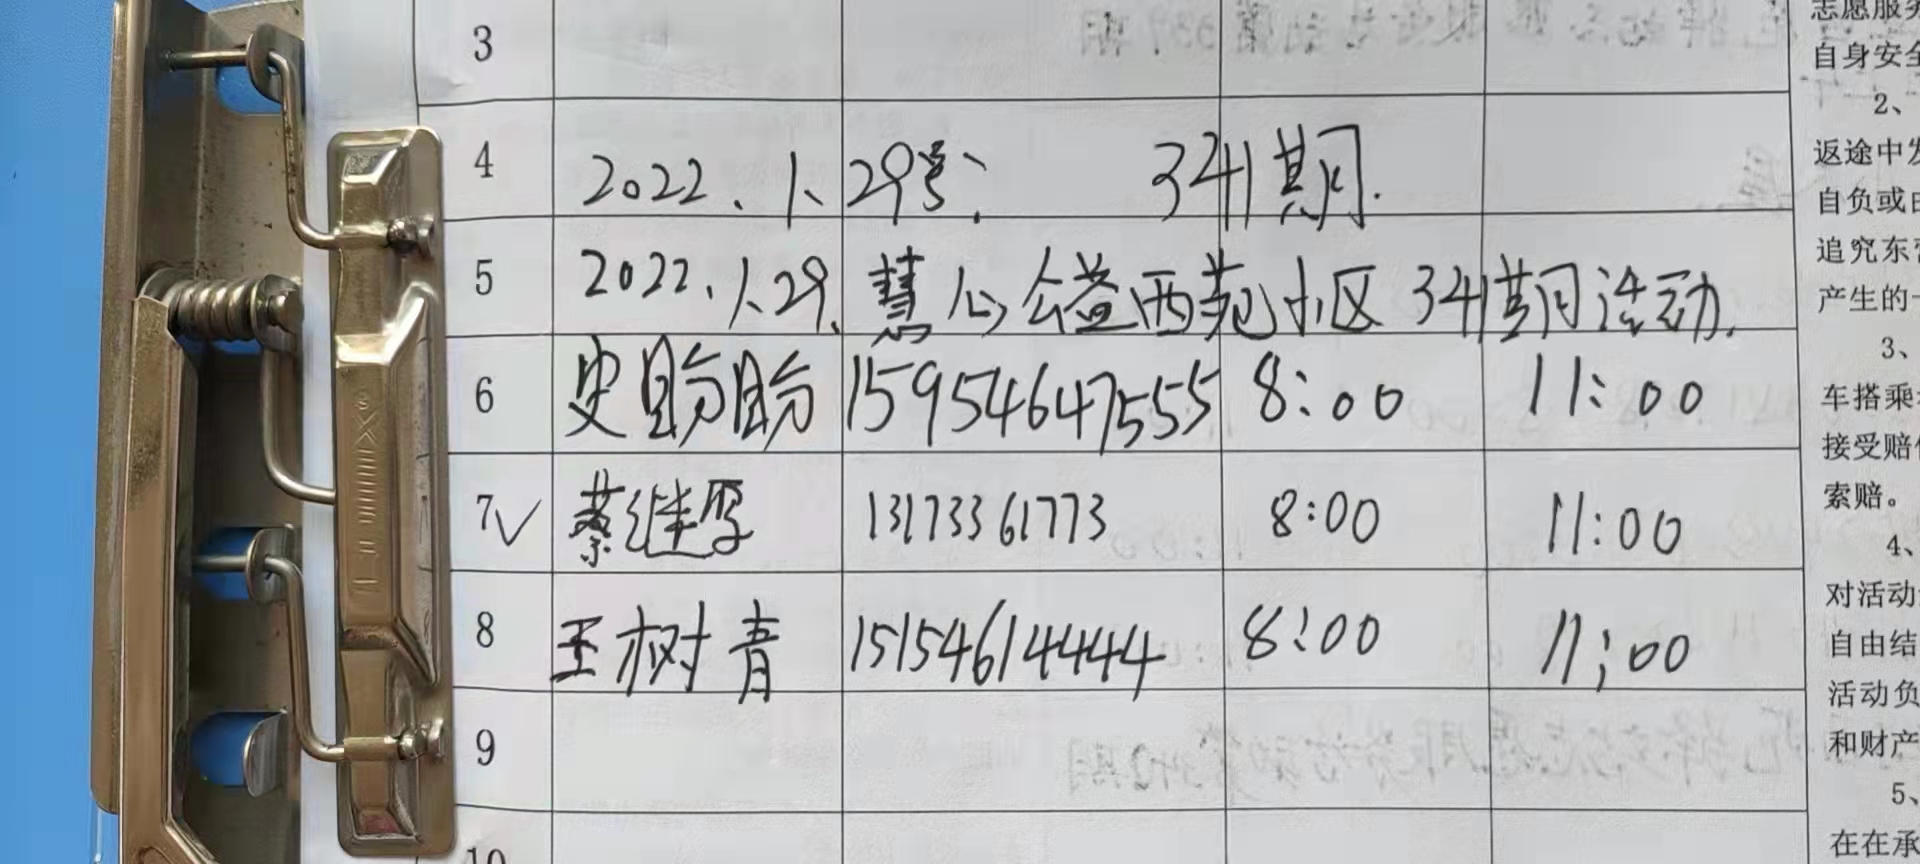 3
志愿服务
自身安全
2、
4 2022.1.29号、 341期.
返途中发
自负或由
5 2022.1.29、慧心公益西苑小区341期活动.
追究东营
产生的一
3、
6 史盼盼 15954647555 8:00 11:00
车搭乘
接受赔偿
7√ 蔡继学 13173361773 8:00 11:00
索赔。
4、
对活动
8 王树青 15154614444 8:00 11:00
自由结
活动负
9
和财产
5、
在在承
10